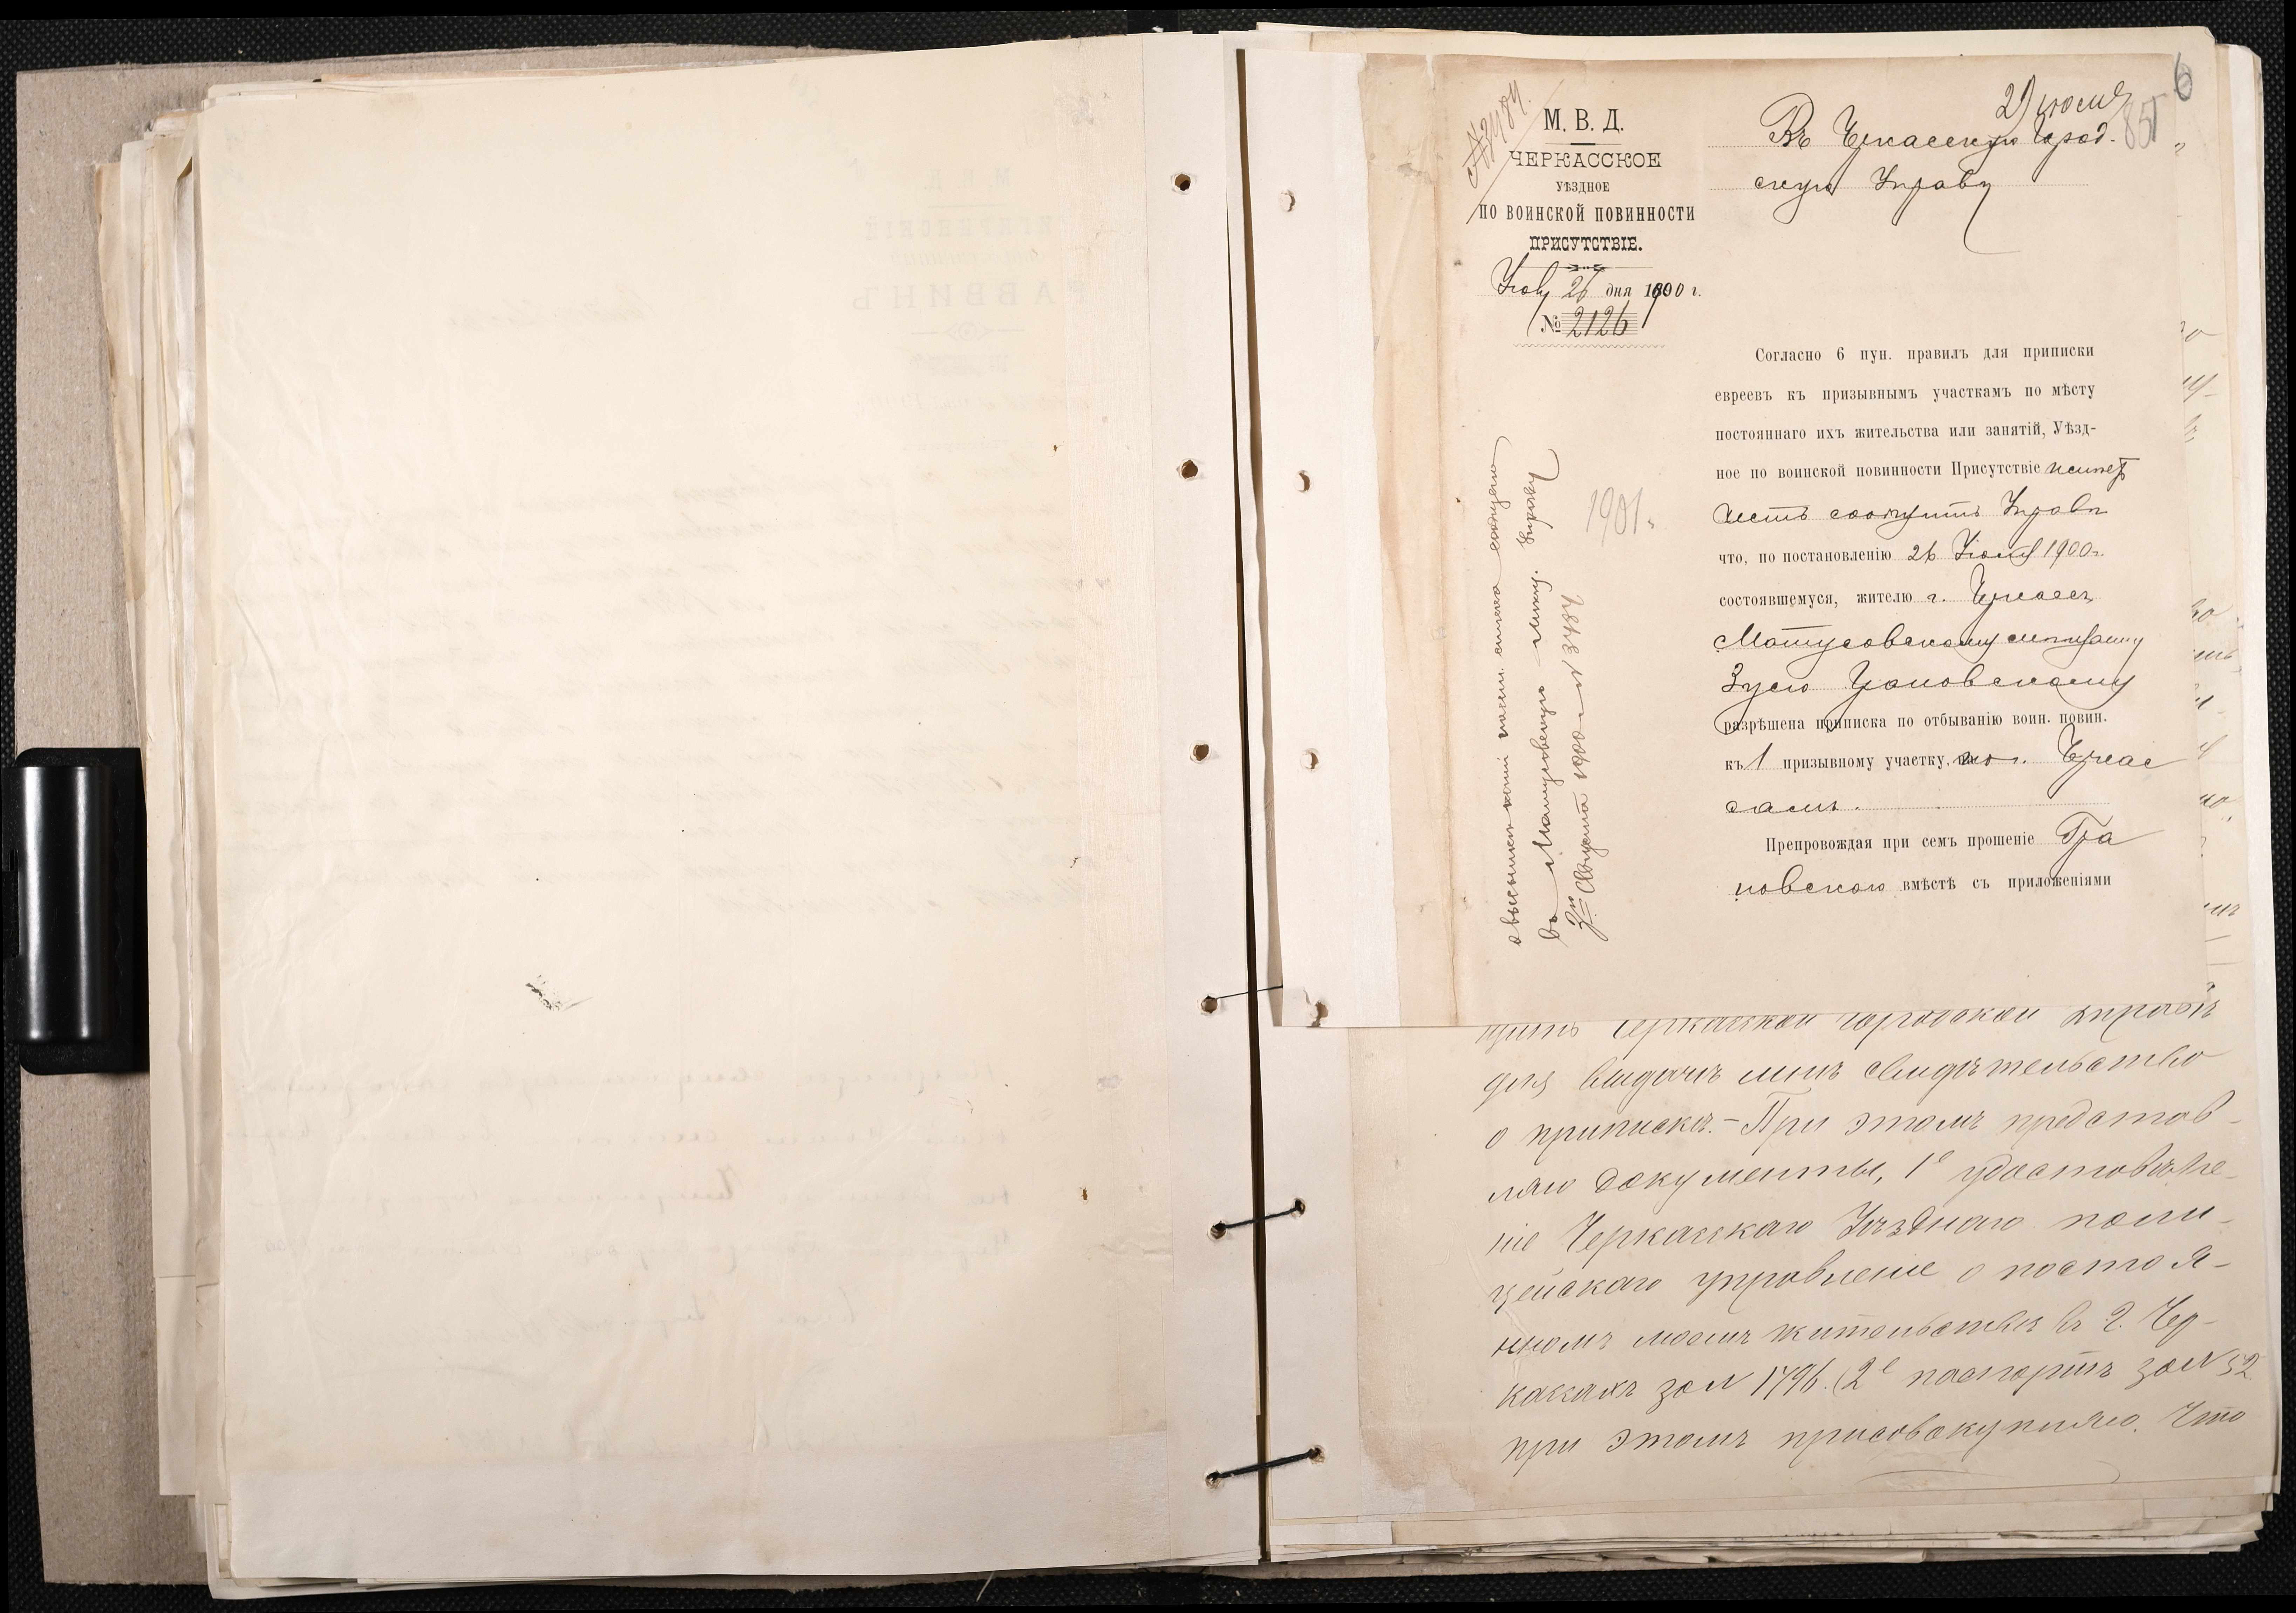 6
29 июля
851
№ 3484.
М. В. Д.
ЧЕРКАССКОЕ
УѢЗДНОЕ
ПО ВОИНСКОЙ ПОВИННОСТИ
ПРИСУТСТВІЕ.
26 дня 1900 г.
№ 2126
Въ Черкасскую Город-
скую Управу
Согласно 6 пун. правилъ для приписки
евреевъ къ призывнымъ участкамъ по мѣсту
постояннаго ихъ жительства или занятій, Уѣзд-
ное по воинской повинности Присутствіе имѣетъ
честь сообщить Управѣ
что, по постановленію 26 Іюля 1900 г.
состоявшемуся, жителю г. Черкассъ
Матусовскому мѣщанину
Зусю Грановскому
разрѣшена приписка по отбыванію воин. повин.
къ 1 призывному участку, по г. Черкас
самъ.
Препровождая при семъ прошеніе Гра
новскаго вмѣстѣ съ приложеніями
копіи посем. списка сообщено
въ Матусовскую мѣщ. Управу
3го Августа 1900 г. № 3484
1901 г.
щить Черкасской городской управѣ
для выдачи мнѣ свидѣтельство
о припискѣ. – При этомъ представ-
ляю документы, 1е удостовѣре-
ніе Черкасскаго Уѣзднаго поли-
цейскаго управленіе о постоя-
нномъ моемъ жительствѣ въ г. Чер-
кассахъ за № 1796. (2е паспортъ за № 52
при этомъ присовокупляю. Что